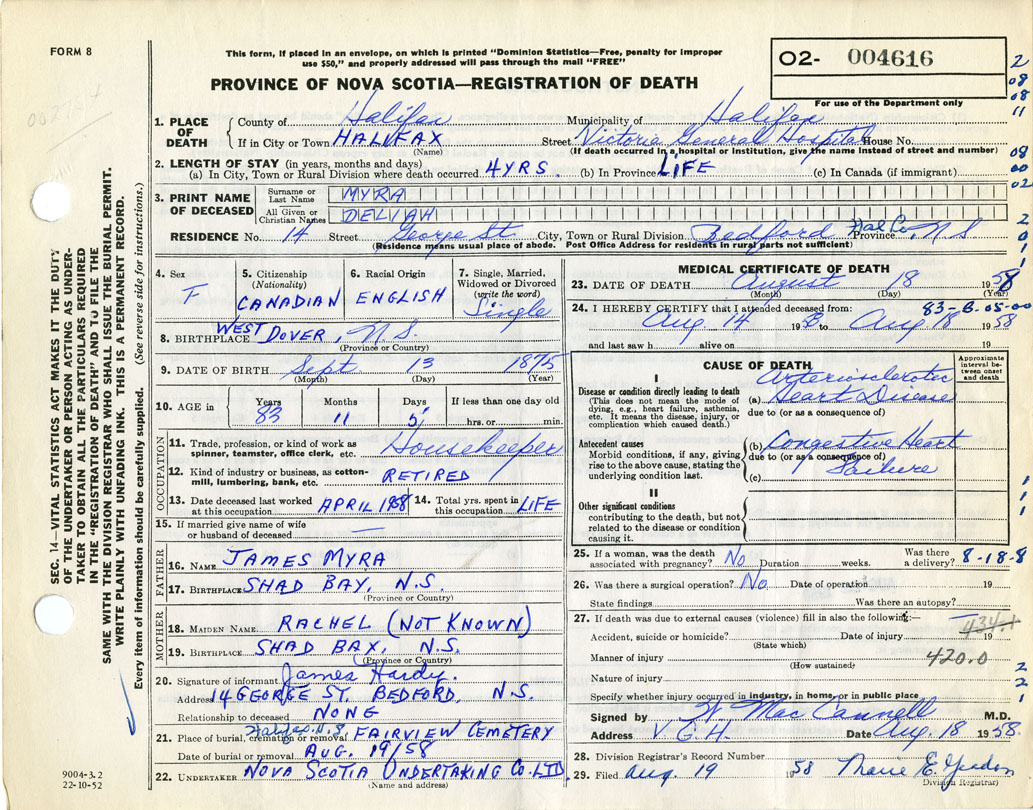 FORM 8
This form, if placed in an envelope, on which is printed "Dominion Statistics—Free, penalty for improper
use $50," and properly addressed will pass through the mail "FREE"
O2- 004616
PROVINCE OF NOVA SCOTIA—REGISTRATION OF DEATH
For use of the Department only
2
08
08
11
08
00
02
2
0
1
1. PLACE OF DEATH
County of Halifax Municipality of Halifax
If in City or Town HALIFAX Street Victoria General Hospital House No.
(Name) (If death occurred in a hospital or institution, give the name instead of street and number)
2. LENGTH OF STAY (in years, months and days)
(a) In City, Town or Rural Division where death occurred 4 YRS. (b) In Province LIFE (c) In Canada (if immigrant)
3. PRINT NAME OF DECEASED
Surname or Last Name MYRA
All Given or Christian Names DELIAH
RESIDENCE No. 14 Street George St. City, Town or Rural Division Bedford Hal Co Province N.S
(Residence means usual place of abode. Post Office Address for residents in rural parts not sufficient)
4. Sex F
5. Citizenship (Nationality) CANADIAN
6. Racial Origin ENGLISH
7. Single, Married, Widowed or Divorced (write the word) Single
8. BIRTHPLACE WEST DOVER, N.S.
(Province or Country)
9. DATE OF BIRTH Sept 13 1875
(Month) (Day) (Year)
10. AGE in Years 83 Months 11 Days 5 If less than one day old hrs. or min.
OCCUPATION
11. Trade, profession, or kind of work as spinner, teamster, office clerk, etc. Housekeeper
12. Kind of industry or business, as cotton-mill, lumbering, bank, etc. RETIRED
13. Date deceased last worked at this occupation APRIL 1958
14. Total yrs. spent in this occupation LIFE
15. If married give name of wife or husband of deceased —
FATHER
16. NAME JAMES MYRA
17. BIRTHPLACE SHAD BAY, N.S.
(Province or Country)
MOTHER
18. MAIDEN NAME RACHEL (NOT KNOWN)
19. BIRTHPLACE SHAD BAY, N.S.
(Province or Country)
20. Signature of informant James Hardy.
Address 14 GEORGE ST, BEDFORD, N.S.
Relationship to deceased NONE
21. Place of burial, cremation or removal Halifax N.S FAIRVIEW CEMETERY
Date of burial or removal AUG. 19/58
22. UNDERTAKER NOVA SCOTIA UNDERTAKING CO. LTD
(Name and address)
MEDICAL CERTIFICATE OF DEATH
23. DATE OF DEATH August 18 1958
(Month) (Day) (Year)
24. I HEREBY CERTIFY that I attended deceased from: 83-B-05-00
Aug 14 1958 to Aug 18 1958
and last saw h alive on 19
CAUSE OF DEATH
Approximate interval between onset and death
I
Disease or condition directly leading to death
(This does not mean the mode of dying, e.g., heart failure, asthenia, etc. It means the disease, injury, or complication which caused death.)
(a) Arteriosclerotic Heart Disease
due to (or as a consequence of)
Antecedent causes
Morbid conditions, if any, giving rise to the above cause, stating the underlying condition last.
(b) Congestive Heart Failure
due to (or as a consequence of)
(c)
II
Other significant conditions
contributing to the death, but not related to the disease or condition causing it.
1
1
1
25. If a woman, was the death associated with pregnancy? No Duration weeks. Was there a delivery? 8-18-8
26. Was there a surgical operation? No Date of operation 19
State findings Was there an autopsy?
27. If death was due to external causes (violence) fill in also the following:—
434.1
Accident, suicide or homicide? Date of injury 19
(State which)
Manner of injury 420.0
(How sustained)
Nature of injury
Specify whether injury occurred in industry, in home, or in public place
2
2
1
Signed by W MacCannell M.D.
Address V G H Date Aug 18 1958.
28. Division Registrar's Record Number
29. Filed Aug 19 1958 Marie E.
Division Registrar)
SEC. 14—VITAL STATISTICS ACT MAKES IT THE DUTY
OF THE UNDERTAKER OR PERSON ACTING AS UNDER-
TAKER TO OBTAIN ALL THE PARTICULARS REQUIRED
IN THE "REGISTRATION OF DEATH" AND TO FILE THE
SAME WITH THE DIVISION REGISTRAR WHO SHALL ISSUE THE BURIAL PERMIT.
WRITE PLAINLY WITH UNFADING INK. THIS IS A PERMANENT RECORD.
Every item of information should be carefully supplied. (See reverse side for instructions.)
9004-3.2
22-10-52